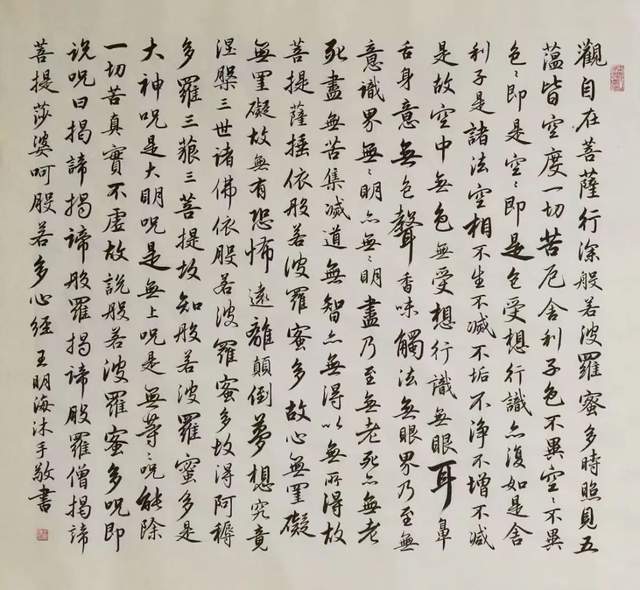 觀自在菩薩行深般若波羅蜜多時照見五
蘊皆空度一切苦厄舍利子色不異空〻不異
色〻即是空〻即是色受想行識亦復如是舍
利子是諸法空相不生不滅不垢不淨不增不減
是故空中無色無受想行識無眼耳鼻
舌身意無色聲香味觸法無眼界乃至無
意識界無〻明亦無〻明盡乃至無老死亦無老
死盡無苦集滅道無智亦無得以無所得故
菩提薩埵依般若波羅蜜多故心無罣礙
無罣礙故無有恐怖遠離顛倒夢想究竟
涅槃三世诸佛依般若波羅蜜多故得阿耨
多羅三藐三菩提故知般若波羅蜜多是
大神呪是大明呪是無上呪是無等〻呪能除
一切苦真實不虛故說般若波羅蜜多呪即
说呪曰揭諦揭諦般羅揭諦般羅僧揭諦
菩提莎婆呵般若多心經 王明海沐手敬書